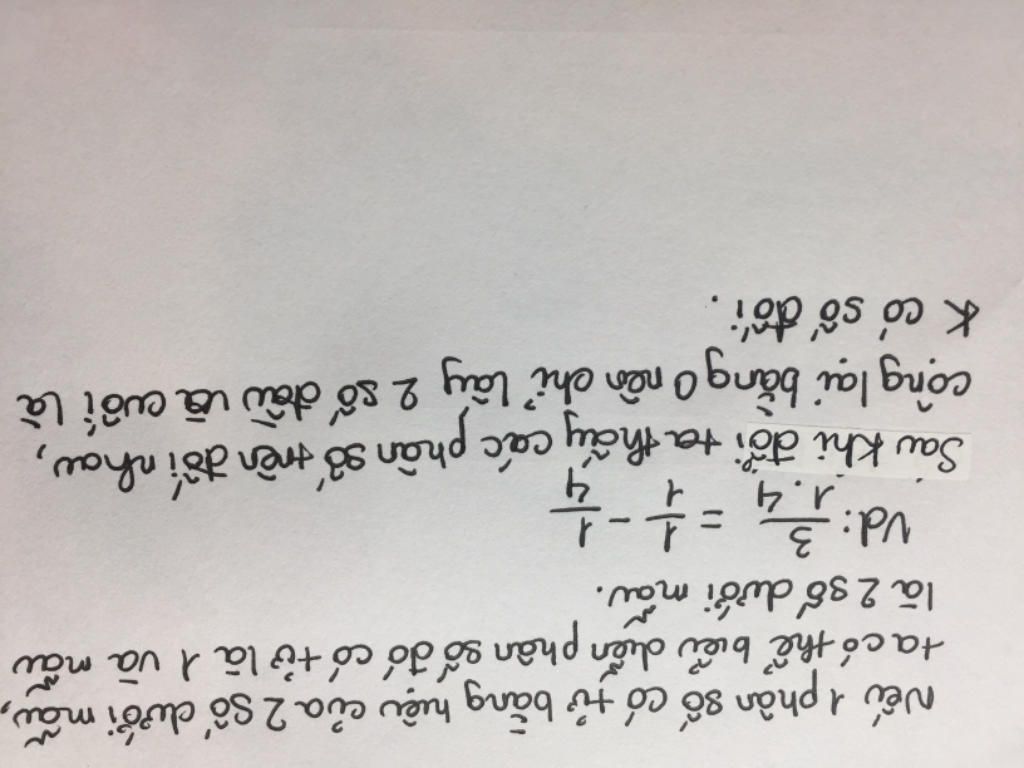 Nếu 1 phân số có tử bằng hiệu của 2 số dưới mẫu,
ta có thể biểu diễn phân số đó có tử là 1 và mẫu
là 2 số dưới mẫu.
Vd: 3/1.4 = 1/1 - 1/4
Sau khi đổi ta thấy các phân số trên đối nhau,
cộng lại bằng 0 nên chỉ lấy 2 số đầu và cuối là
k có số đối.